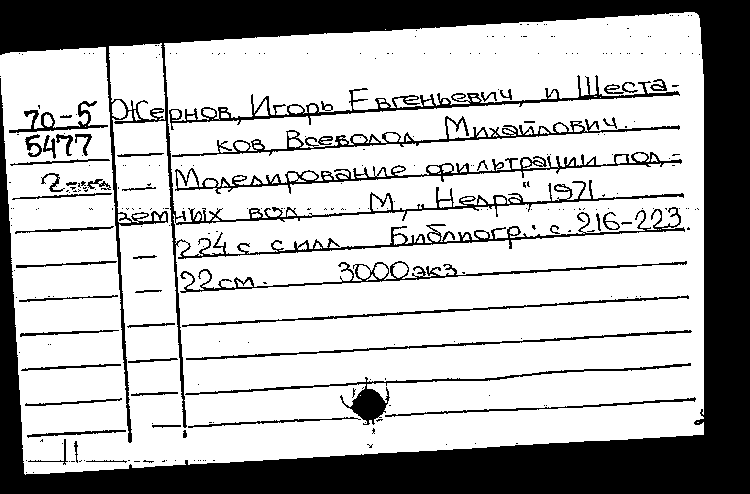 70-5 Жернов, Игорь Евгеньевич, и Шеста-
5477 ков, Всеволод Михайлович.
2 Моделирование фильтрации под-
земных вод. М, "Недра", 1971.
224 с с илл Библиогр.: с. 216-223.
22 см. 3000 экз.
11